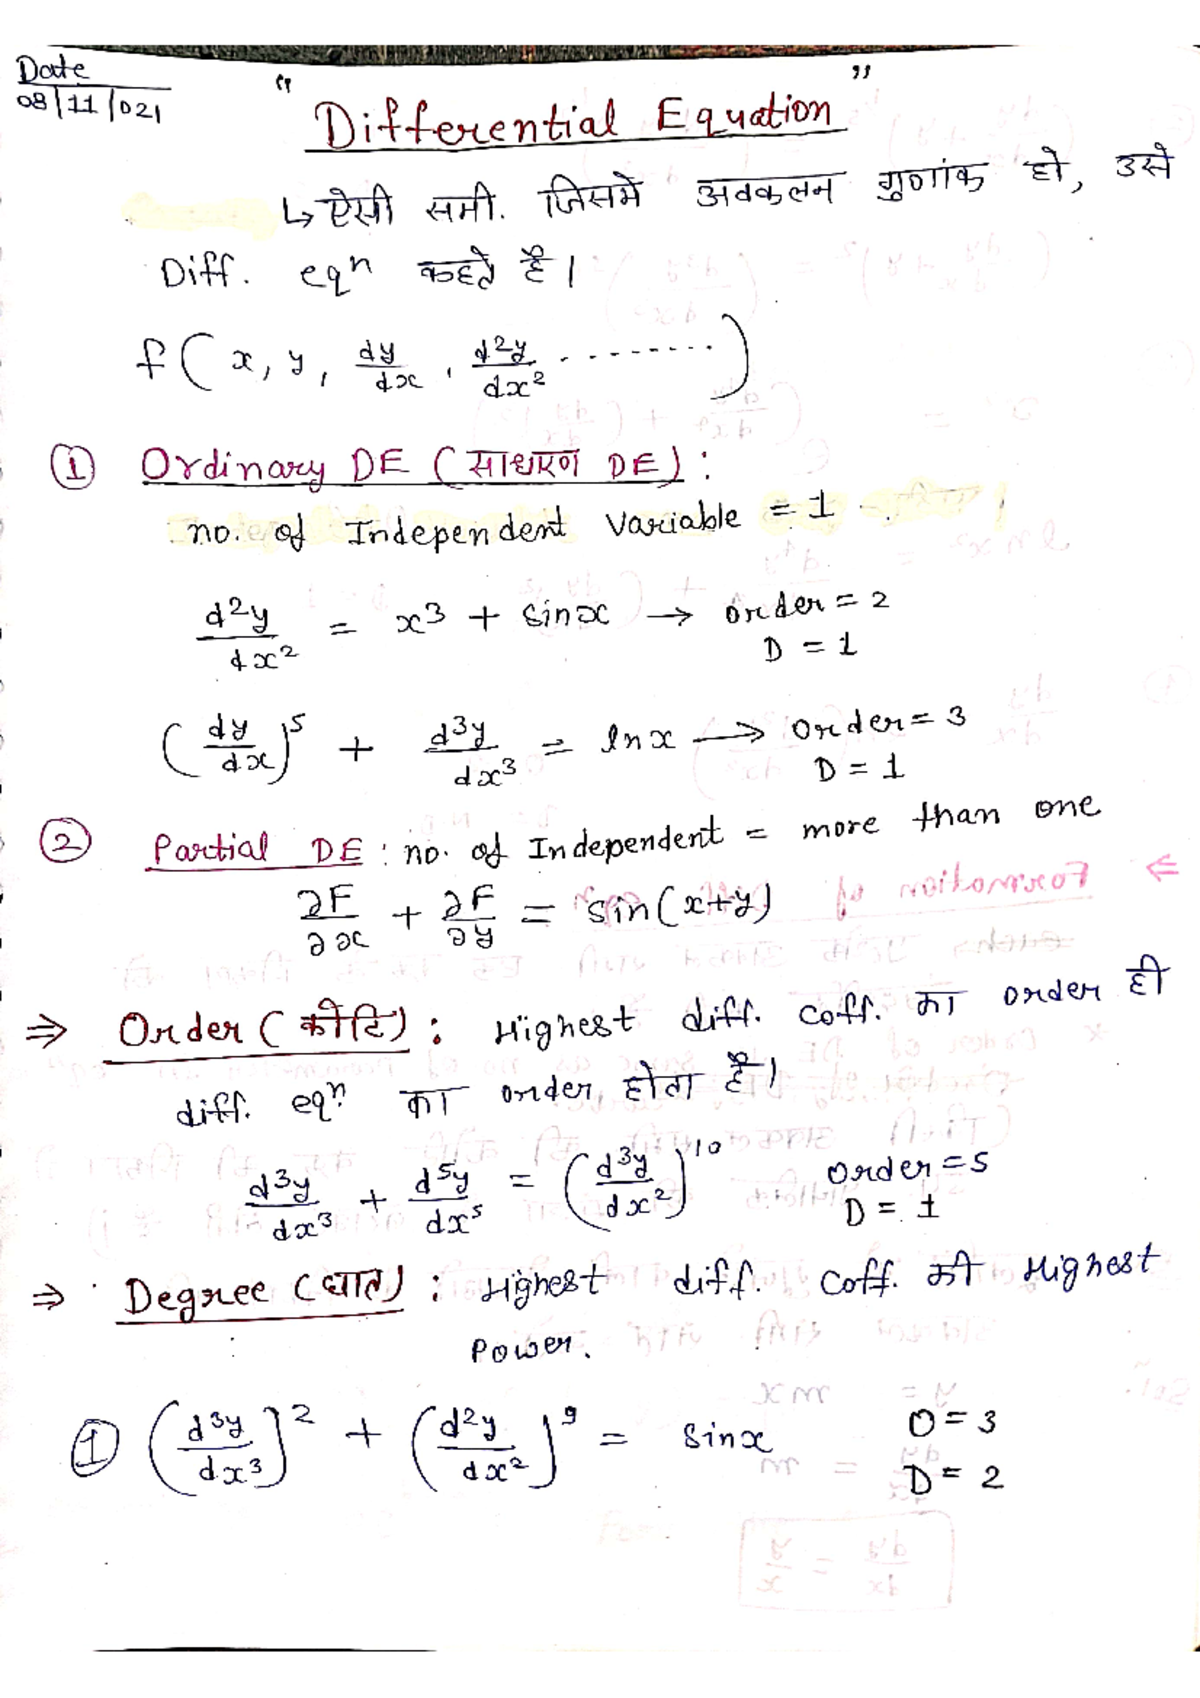 Date
08/11/021
" Differential Equation "
↳ ऐसी समी. जिसमे अवकलन गुणांक हो, उसे
Diff. eqⁿ कहते है।
f(x, y, dy/dx, d²y/dx² ........)
① Ordinary DE (साधारण DE) :
no. of Independent Variable = 1
d²y/dx² = x³ + sinx → order = 2
D = 1
(dy/dx)⁵ + d³y/dx³ = lnx → order = 3
D = 1
② Partial DE : no. of Independent = more than one
∂F/∂x + ∂F/∂y = sin(x+y)
⇒ Order (कोटि) : Highest diff. Coff. का order ही
diff. eqⁿ. का order होता है।
d³y/dx³ + d⁵y/dx⁵ = (d³y/dx²)¹⁰ order = 5
D = 1
⇒ Degree (घात) : Highest diff. Coff. की Highest
Power.
① (d³y/dx³)² + (d²y/dx²)⁹ = sinx O = 3
D = 2